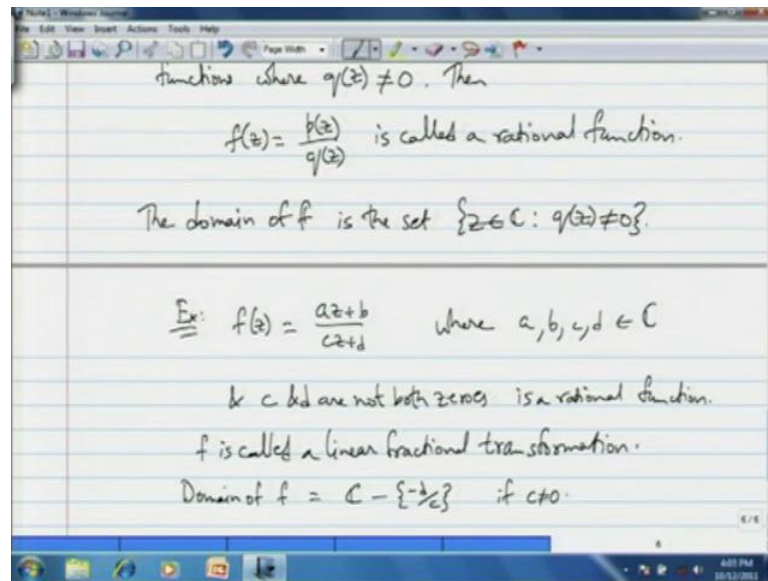 Note1 - Windows Journal
File Edit View Insert Actions Tools Help
Page Width
functions where q(z) ≠ 0. Then
f(z) = p(z)/q(z) is called a rational function.
The domain of f is the set {z ∈ ℂ : q(z) ≠ 0}.
Ex: f(z) = az+b/cz+d where a, b, c, d ∈ ℂ
& c & d are not both zeroes is a rational function.
f is called a linear fractional transformation.
Domain of f = ℂ - {-d/c} if c≠0.
6/6
6
4:03 PM
10/12/2011